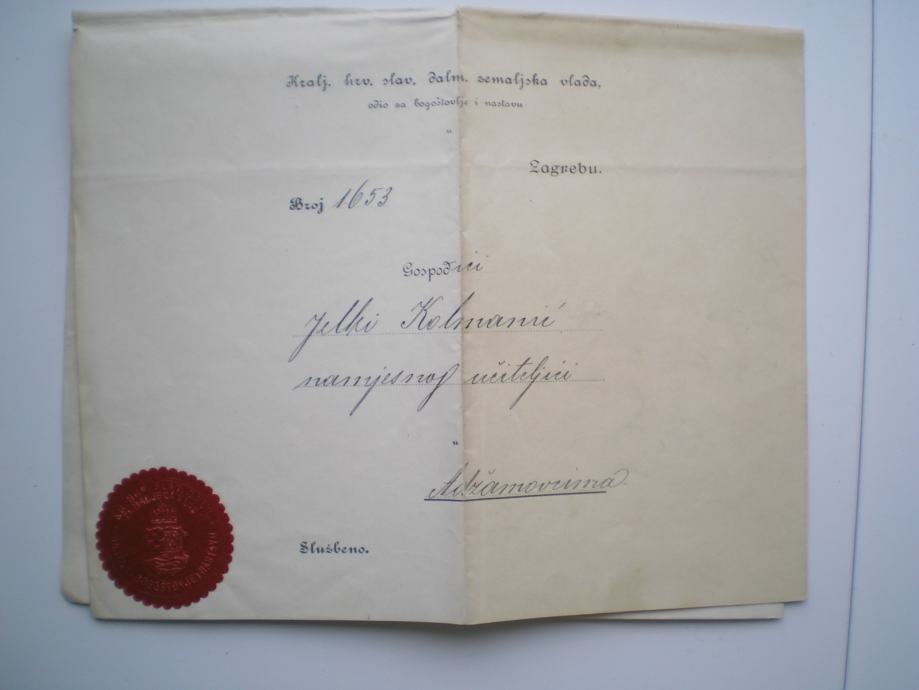 Kralj. hrv. slav. dalm. zemaljska vlada,
odio za bogoštovlje i nastavu
u
Zagrebu.
Broj 1653
Gospođici
Jelki Kolmanić
namjesnoj učiteljici
u
Adžamovcima
Službeno.